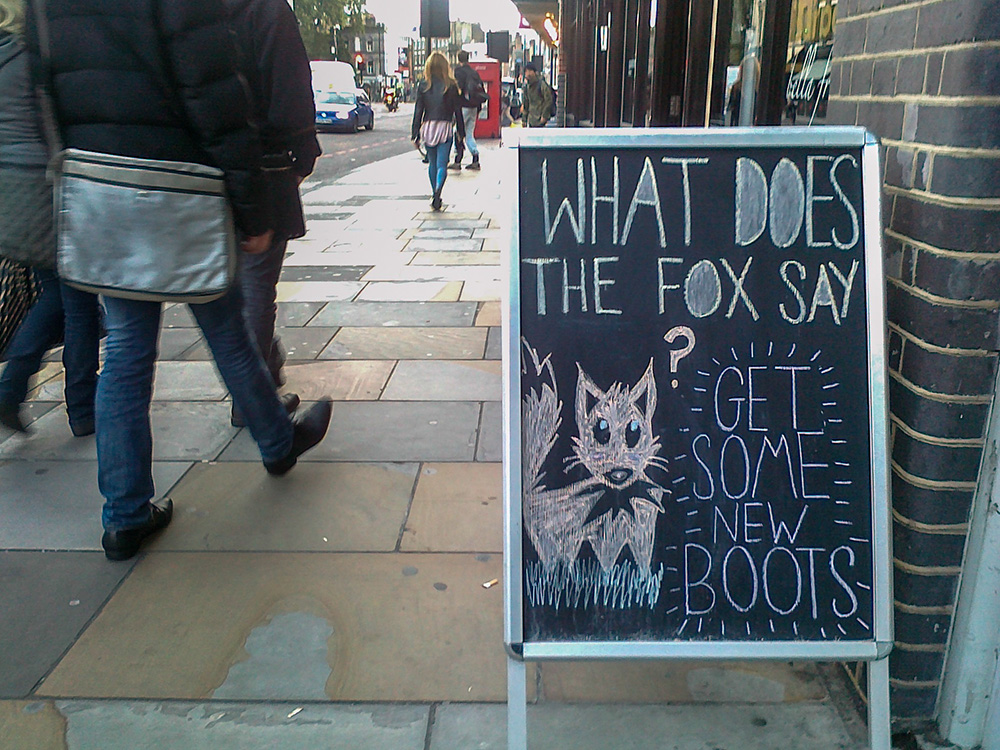 WHAT DOES
THE FOX SAY
?
GET
SOME
NEW
BOOTS